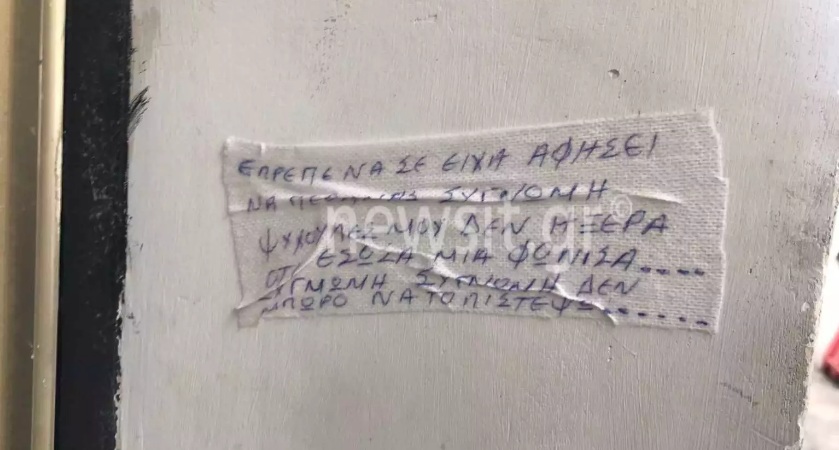 ΕΠΡΕΠΕ ΝΑ ΣΕ ΕΙΧΑ ΑΦΗΣΕΙ
ΝΑ ΣΥΓΝΟΜΗ
ΨΥΧΟΥΛΕΣ ΜΟΥ ΔΕΝ ΗΞΕΡΑ
ΟΤΙ ΕΣΩΣΑ ΜΙΑ ΦΩΝΙΣΑ....
ΣΥΓΝΩΜΗ ΔΕΝ
ΜΠΩΡΟ ΝΑ ΤΟ ΠΙΣΤΕΨΩ.......
newsit.gr©